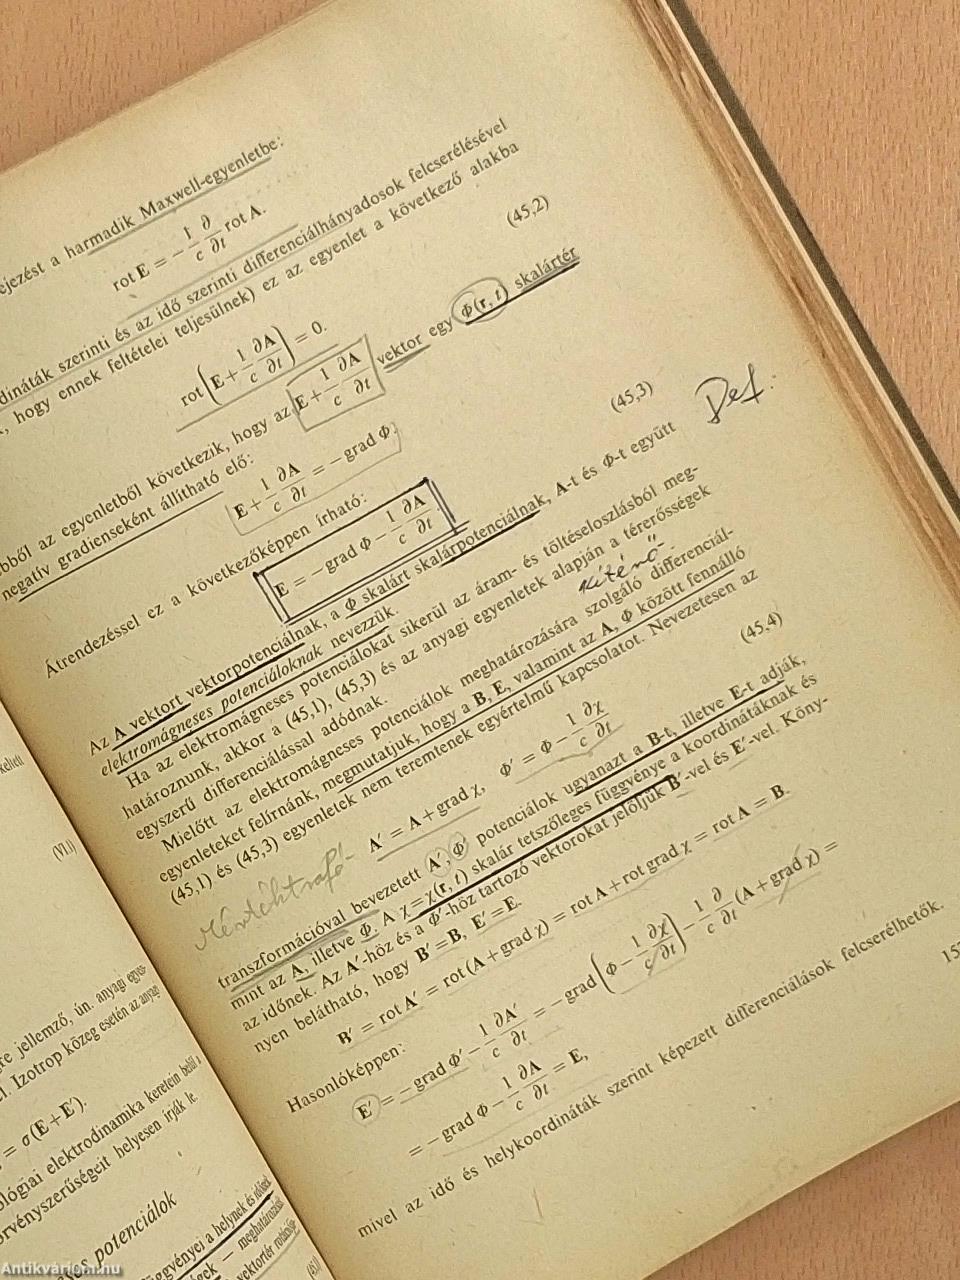 ejezést a harmadik Maxwell-egyenletbe:
rot E = − 1/c ∂/∂t rot A. (45,2)
dináták szerinti és az idő szerinti differenciálhányadosok felcserélésével
, hogy ennek feltételei teljesülnek) ez az egyenlet a következő alakba
rot(E + 1/c ∂A/∂t) = 0.
ebből az egyenletből következik, hogy az E + 1/c ∂A/∂t vektor egy Φ(r, t) skalártér
negatív gradienseként állítható elő:
E + 1/c ∂A/∂t = −grad Φ.
Átrendezéssel ez a következőképpen írható:
E = −grad Φ − 1/c ∂A/∂t (45,3)
Def:
Az A vektort vektorpotenciálnak, a Φ skalárt skalárpotenciálnak, A-t és Φ-t együtt
elektromágneses potenciáloknak nevezzük.
Ha az elektromágneses potenciálokat sikerül az áram- és töltéseloszlásból meg-
határoznunk, akkor a (45,1), (45,3) és az anyagi egyenletek alapján a térerősségek
egyszerű differenciálással adódnak.
kitérő
Mielőtt az elektromágneses potenciálok meghatározására szolgáló differenciál-
egyenleteket felírnánk, megmutatjuk, hogy a B, E, valamint az A, Φ között fennálló
(45,1) és (45,3) egyenletek nem teremtenek egyértelmű kapcsolatot. Nevezetesen az
A′ = A + grad χ, Φ′ = Φ − 1/c ∂χ/∂t (45,4)
transzformációval bevezetett A′, Φ′ potenciálok ugyanazt a B-t, illetve E-t adják,
mint az A, illetve Φ. A χ = χ(r, t) skalár tetszőleges függvénye a koordinátáknak és
az időnek. Az A′-höz és a Φ′-höz tartozó vektorokat jelöljük B′-vel és E′-vel. Köny-
nyen belátható, hogy B′ = B, E′ = E.
B′ = rot A′ = rot (A + grad χ) = rot A + rot grad χ = rot A = B.
Hasonlóképpen:
E′ = −grad Φ′ − 1/c ∂A′/∂t = −grad(Φ − 1/c ∂χ/∂t) − 1/c ∂/∂t (A + grad χ) =
= −grad Φ − 1/c ∂A/∂t = E,
mivel az idő és helykoordináták szerint képezett differenciálások felcserélhetők.
(VI,i)
re jellemző, ún. anyagi egyen-
el. Izotrop közeg esetén az anyagi
= σ(E + E′).
ológiai elektrodinamika keretein belül a
örvényszerűségeit helyesen írják le.
potenciálok
függvényei a helynek és
ségek — meghatározását
vektortér rotációja
(45,1)
Antikvárium.hu